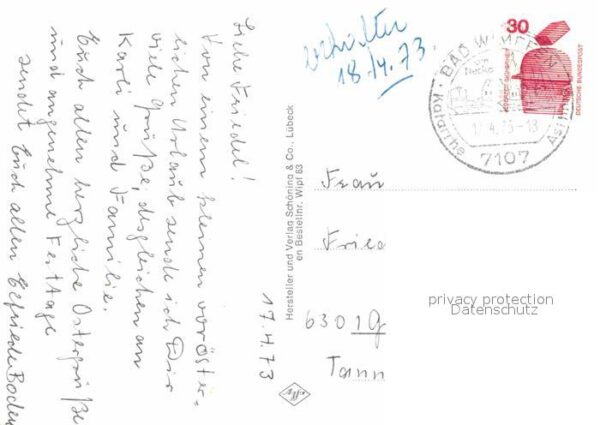 Liebe Friedel!
Von einem kleinen voröster=
lichen Urlaub sende ich Dir
viele Grüße, desgleichen an
Karli und Familie.
Euch allen herzliche Ostergrüße
und angenehme Festtage
sendet Euch allen
17.4.73
erhalten
18/4.73.
Hersteller und Verlag Schöning & Co., Lübeck
en Bestellnr. Wipf 83
30
DEUTSCHE BUNDESPOST
BAD WIMPFEN
am Neckar
Katarrhe
17.4.73-18
7107
Frau
Fried
6301
Tann
privacy protection
Datenschutz